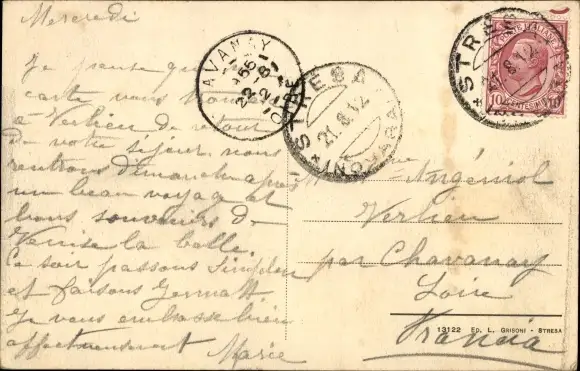 Mercredi
Je pense que ma
carte vous trouvera
à Verlieu de retour
de votre séjour. nous
rentrons dimanche après
un beau voyage et
bons souvenirs de
Venise la belle.
Ce soir passons Simplon
et faisons Zermatt
Je vous embrasse bien
affectueusement Marie
AVANAY
LOIRE
22 - 8
12
STRESA
21.8.12
(NOVARA)
STRES
21.8.12
POSTE ITALIANE
10 CENTESIMI 10
Mme Angéniol
Verlieu
par Chavanay
Loire
13122 ED. L. GRISONI - STRESA
Francia